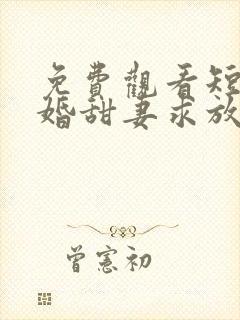 免費觀看短
婚甜妻求放
曾憲初